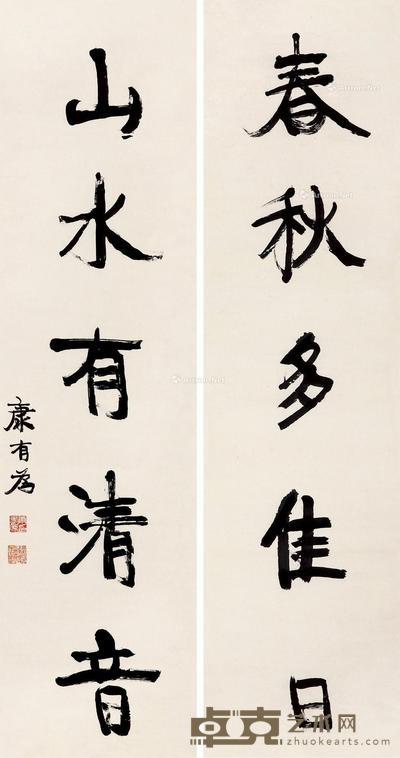 春秋多佳日
山水有清音
康有為
卓克艺术网
zhuokearts.com